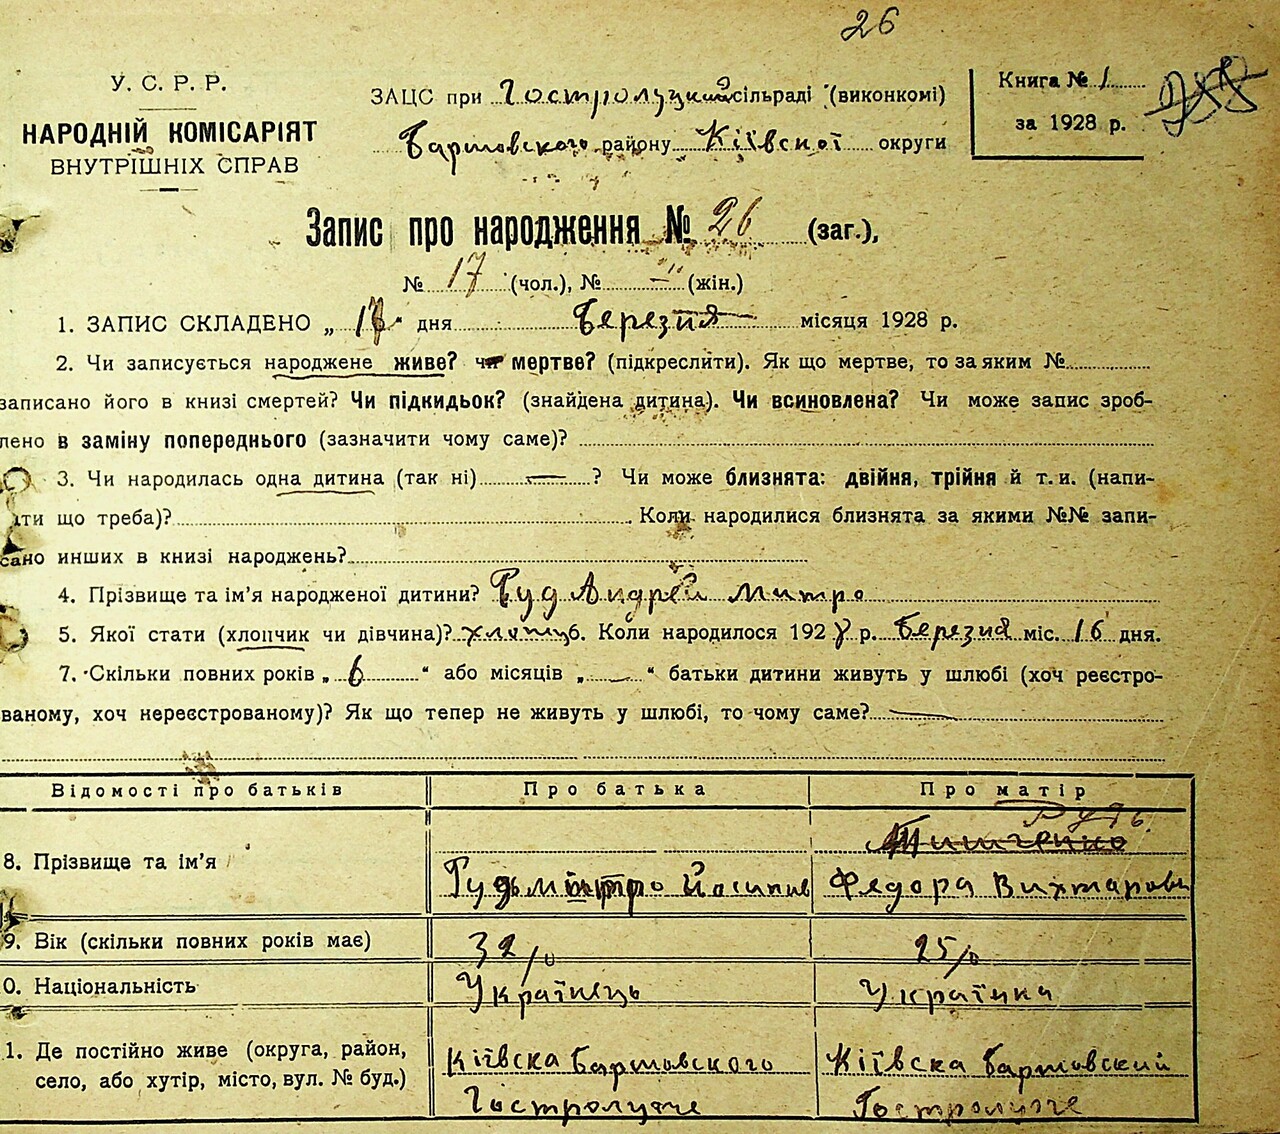 26
У. С. Р. Р.
НАРОДНІЙ КОМІСАРІЯТ
ВНУТРІШНІХ СПРАВ
ЗАЦС при Гостролуцкий сільраді (виконкомі)
Баришовского району Київскої округи
Книга № 1
за 1928 р.
Запис про народження № 26 (заг.),
№ 17 (чол.), № —"— (жін.)
1. ЗАПИС СКЛАДЕНО „ 17 " дня Березня місяця 1928 р.
2. Чи записується народжене живе? чи мертве? (підкреслити). Як що мертве, то за яким №
записано його в книзі смертей? Чи підкидьок? (знайдена дитина). Чи всиновлена? Чи може запис зроб-
лено в заміну попереднього (зазначити чому саме)?
3. Чи народилась одна дитина (так ні) — ? Чи може близнята: двійня, трійня й т. и. (напи-
ати що треба)? Коли народилися близнята за якими №№ запи-
сано инших в книзі народжень?
4. Прізвище та ім'я народженої дитини? Гуд Андрей Митро
5. Якої стати (хлопчик чи дівчина)? хлопц 6. Коли народилося 1928 р. Березня міс. 16 дня.
7. Скільки повних років „ 6 " або місяців „ — " батьки дитини живуть у шлюбі (хоч реєстро-
ваному, хоч нереєстрованому)? Як що тепер не живуть у шлюбі, то чому саме? —
Відомості про батьків Про батька Про матір
8. Прізвище та ім'я Гудь Митро Йосипів
Гудь
Тимченко
Федора Вихтаровн
9. Вік (скільки повних років має) 32 р. 25 р.
0. Національність Українець Українка
1. Де постійно живе (округа, район,
село, або хутір, місто, вул. № буд.)
Київска Баришовского
Гостролучче
Київска Баришовский
Гостролучче